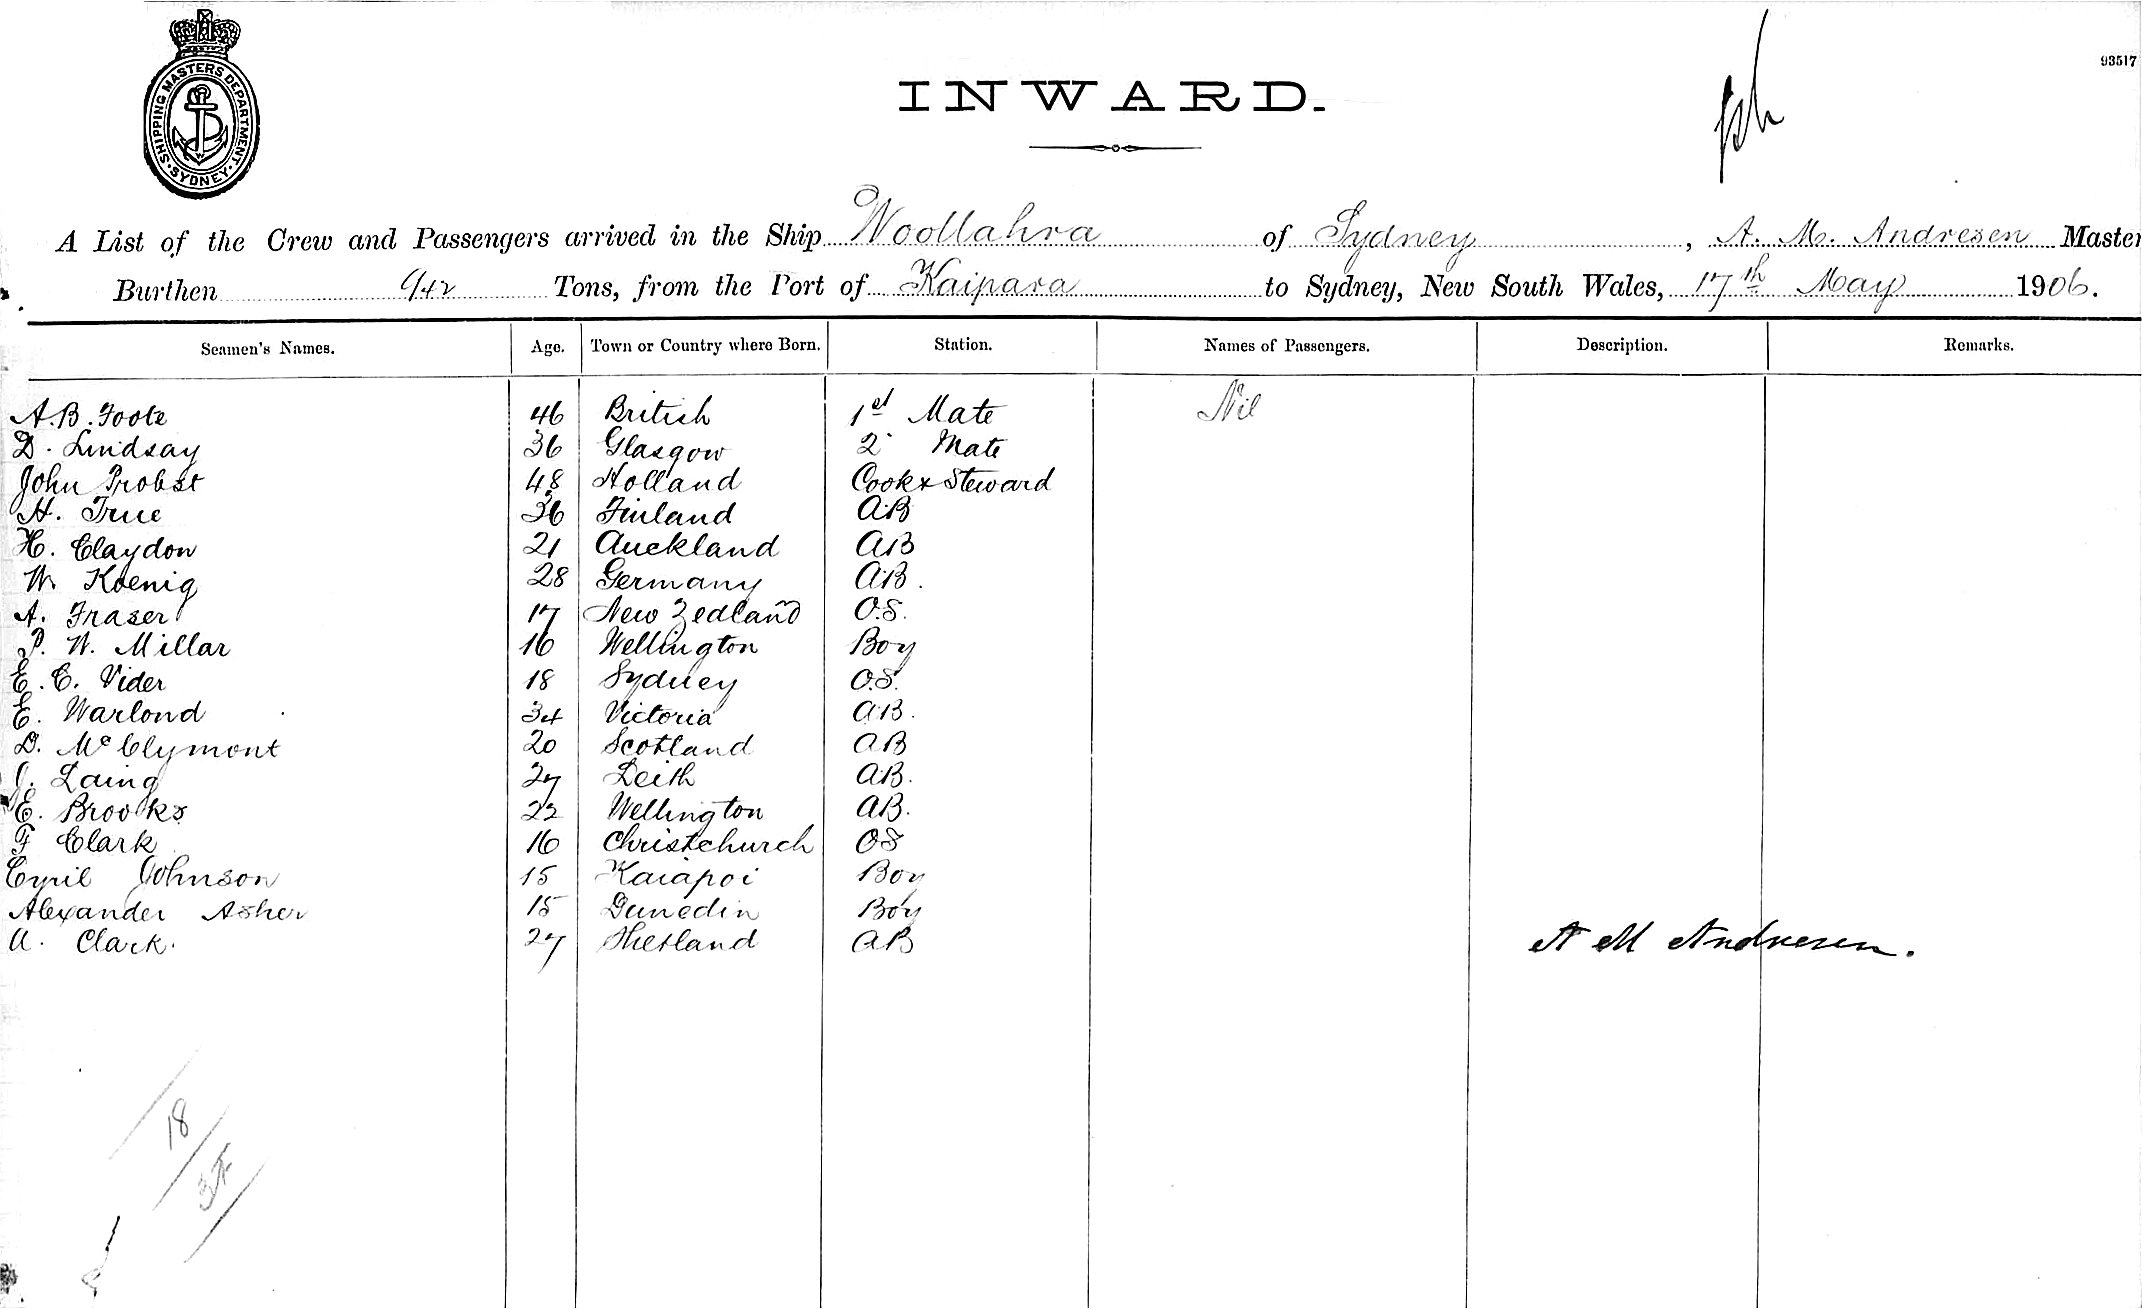 SHIPPING MASTERS DEPARTMENT · SYDNEY ·
93517
INWARD.
A List of the Crew and Passengers arrived in the Ship Woollahra of Sydney, A. M. Andresen Master
Burthen 942 Tons, from the Port of Kaipara to Sydney, New South Wales, 17th May 1906.
Seamen's Names. Age. Town or Country where Born. Station. Names of Passengers. Description. Remarks.
A. B. Foote 46 British 1st Mate Nil
D. Lindsay 36 Glasgow 2 Mate
John Probst 48 Holland Cook & Steward
H. True 36 Finland AB
H. Claydon 21 Auckland AB
W. Koenig 28 Germany AB.
A. Fraser 17 New Zealand O.S.
P. W. Millar 16 Wellington Boy
E. C. Vider 18 Sydney O.S.
E. Warlond 34 Victoria AB.
D. McClymont 20 Scotland AB
J. Laing 27 Leith AB.
E. Brooks 22 Wellington AB.
F Clark 16 Christchurch OS
Cyril Johnson 15 Kaiapoi Boy
Alexander Asher 15 Dunedin Boy
A. Clark. 27 Shetland AB A M Andresen.
18